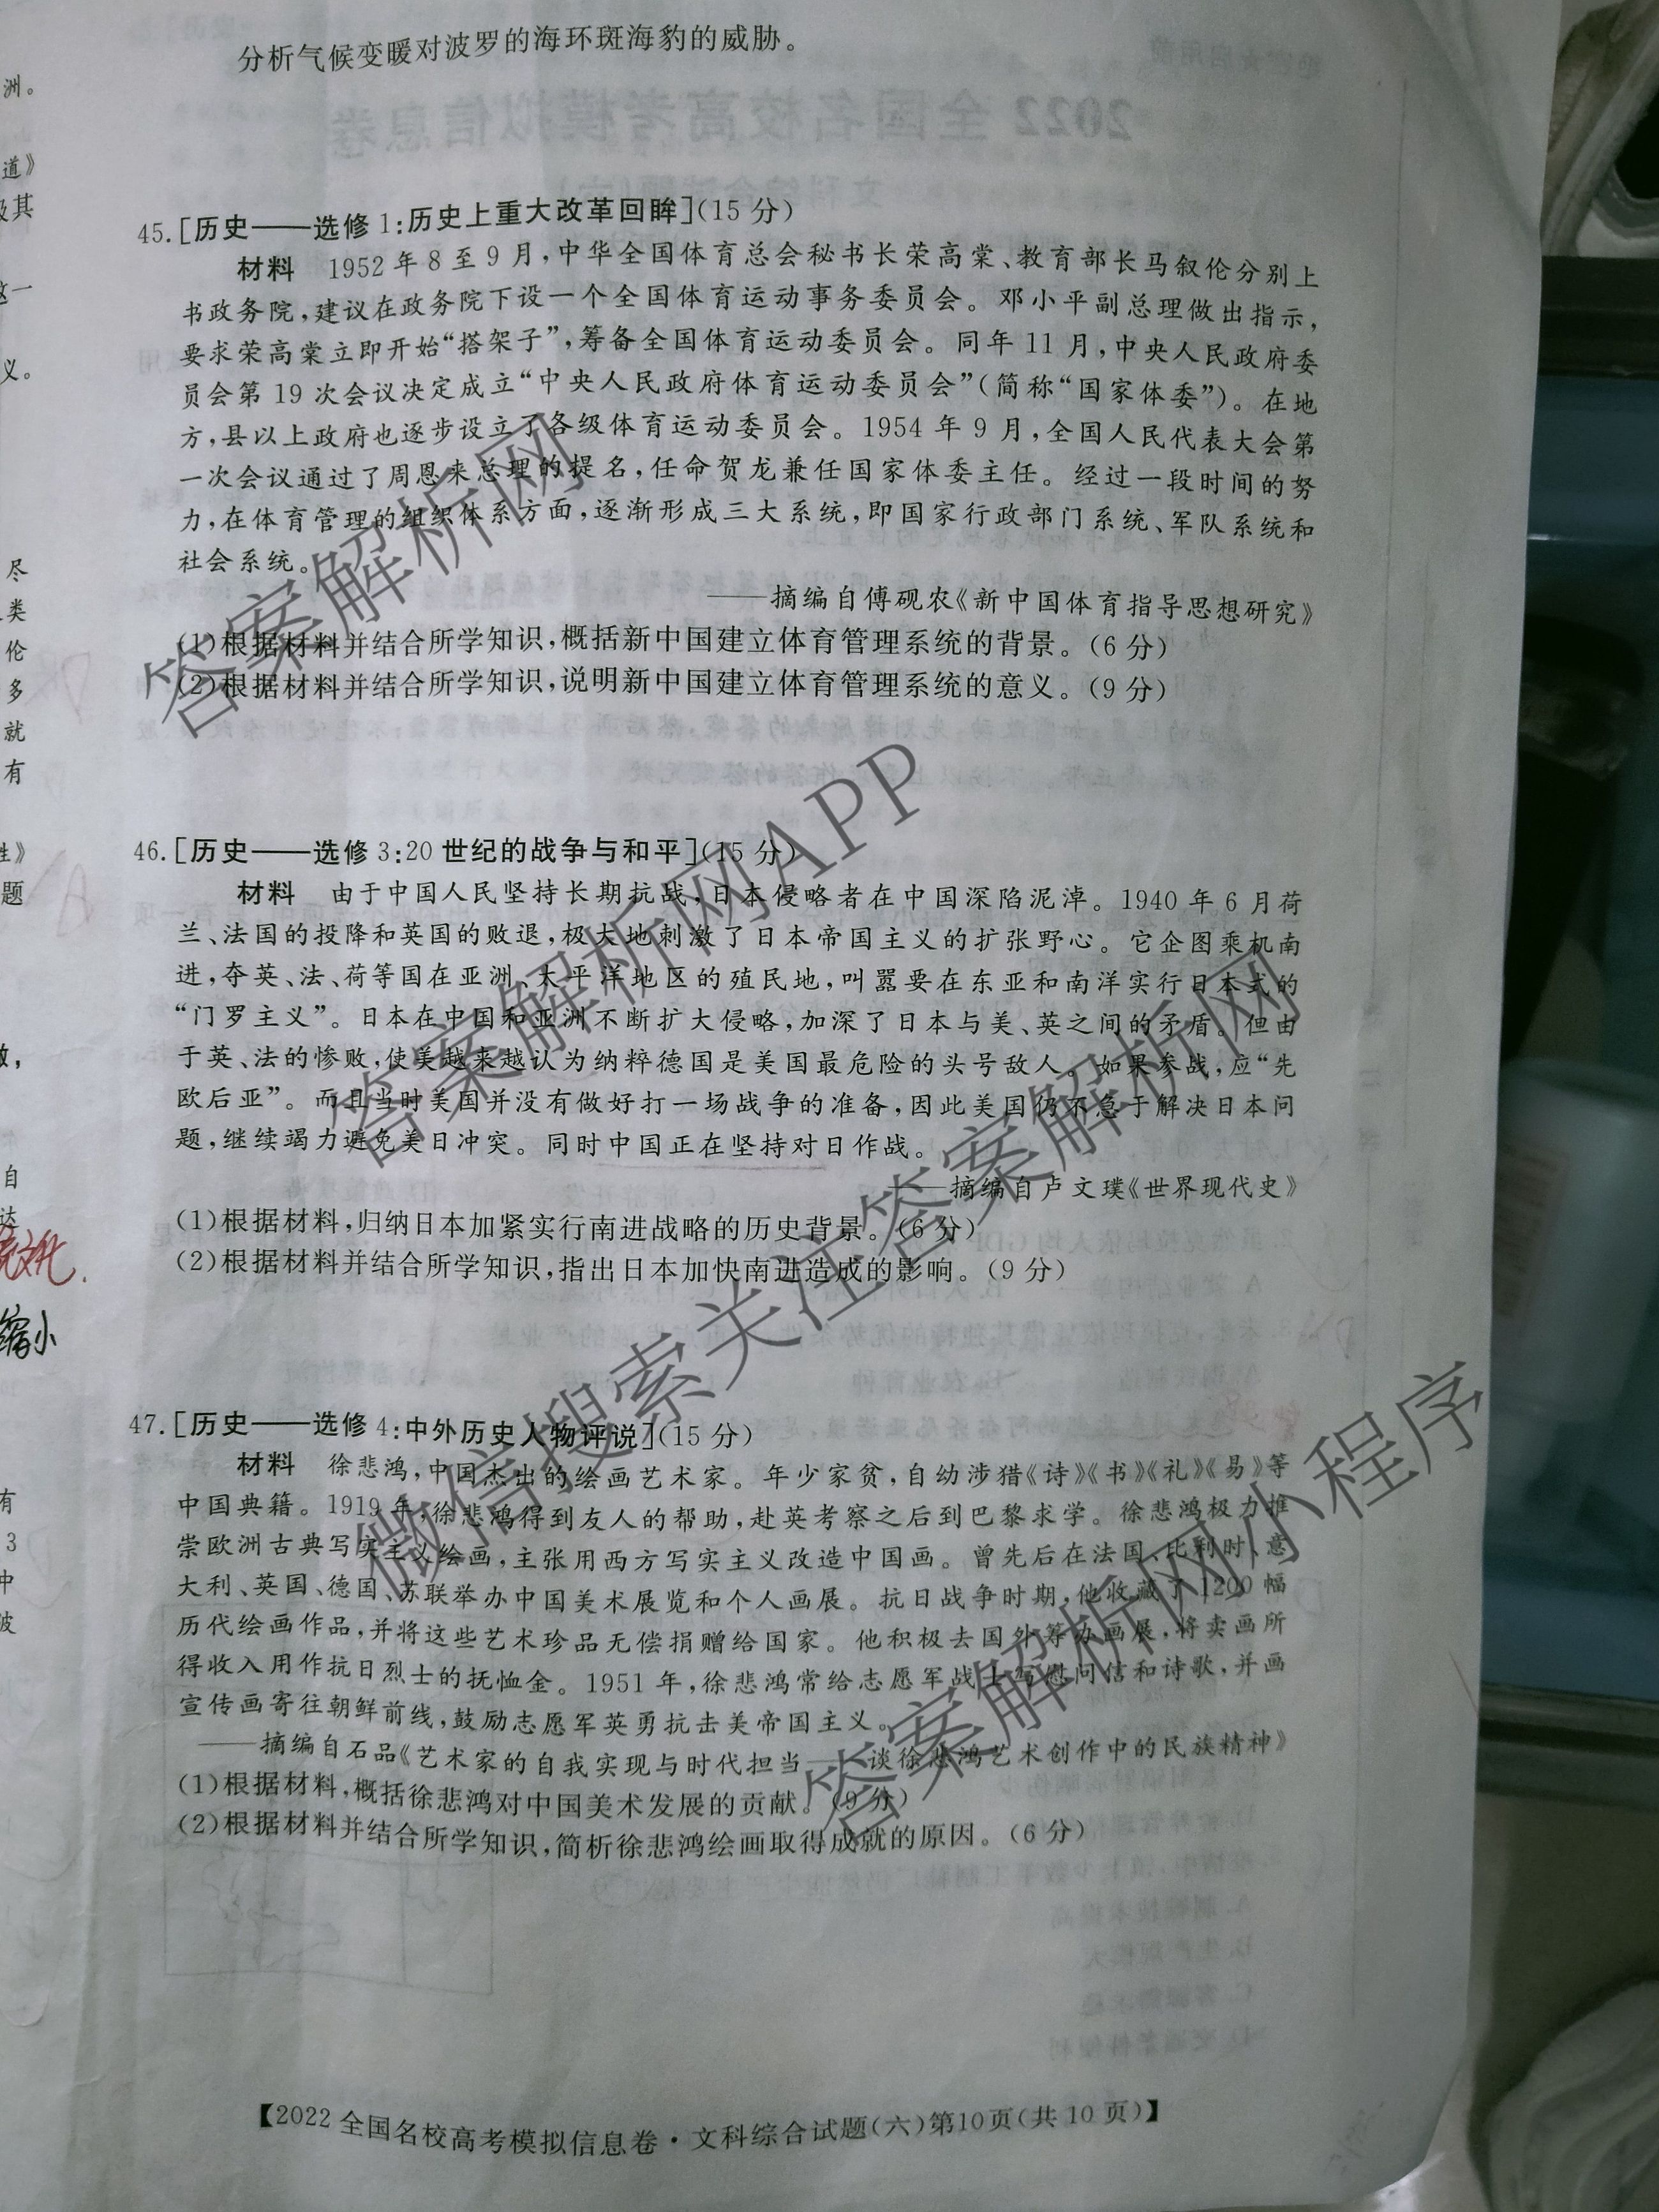 分析气候变暖对波罗的海环斑海豹的威胁。
45.[历史——选修1:历史上重大改革回眸](15分)
材料 1952年8至9月,中华全国体育总会秘书长荣高棠、教育部长马叙伦分别上
书政务院,建议在政务院下设一个全国体育运动事务委员会。邓小平副总理做出指示,
要求荣高棠立即开始“搭架子”,筹备全国体育运动委员会。同年11月,中央人民政府委
员会第19次会议决定成立“中央人民政府体育运动委员会”(简称“国家体委”)。在地
方,县以上政府也逐步设立了各级体育运动委员会。1954年9月,全国人民代表大会第
一次会议通过了周恩来总理的提名,任命贺龙兼任国家体委主任。经过一段时间的努
力,在体育管理的组织体系方面,逐渐形成三大系统,即国家行政部门系统、军队系统和
社会系统。
——摘编自傅砚农《新中国体育指导思想研究》
(1)根据材料并结合所学知识,概括新中国建立体育管理系统的背景。(6分)
(2)根据材料并结合所学知识,说明新中国建立体育管理系统的意义。(9分)
46.[历史——选修3:20世纪的战争与和平](15分)
材料 由于中国人民坚持长期抗战,日本侵略者在中国深陷泥淖。1940年6月荷
兰、法国的投降和英国的败退,极大地刺激了日本帝国主义的扩张野心。它企图乘机南
进,夺英、法、荷等国在亚洲、太平洋地区的殖民地,叫嚣要在东亚和南洋实行日本式的
“门罗主义”。日本在中国和亚洲不断扩大侵略,加深了日本与美、英之间的矛盾。但由
于英、法的惨败,使美越来越认为纳粹德国是美国最危险的头号敌人。如果参战,应“先
欧后亚”。而且当时美国并没有做好打一场战争的准备,因此美国仍不急于解决日本问
题,继续竭力避免美日冲突。同时中国正在坚持对日作战。
——摘编自卢文璞《世界现代史》
(1)根据材料,归纳日本加紧实行南进战略的历史背景。(6分)
(2)根据材料并结合所学知识,指出日本加快南进造成的影响。(9分)
47.[历史——选修4:中外历史人物评说](15分)
材料 徐悲鸿,中国杰出的绘画艺术家。年少家贫,自幼涉猎《诗》《书》《礼》《易》等
中国典籍。1919年,徐悲鸿得到友人的帮助,赴英考察之后到巴黎求学。徐悲鸿极力推
崇欧洲古典写实主义绘画,主张用西方写实主义改造中国画。曾先后在法国、比利时、意
大利、英国、德国、苏联举办中国美术展览和个人画展。抗日战争时期,他收藏了1200幅
历代绘画作品,并将这些艺术珍品无偿捐赠给国家。他积极去国外筹办画展,将卖画所
得收入用作抗日烈士的抚恤金。1951年,徐悲鸿常给志愿军战士写慰问信和诗歌,并画
宣传画寄往朝鲜前线,鼓励志愿军英勇抗击美帝国主义。
——摘编自石品《艺术家的自我实现与时代担当——谈徐悲鸿艺术创作中的民族精神》
(1)根据材料,概括徐悲鸿对中国美术发展的贡献。(9分)
(2)根据材料并结合所学知识,简析徐悲鸿绘画取得成就的原因。(6分)
【2022全国名校高考模拟信息卷·文科综合试题(六)第10页(共10页)】
答案解析网
答案解析网APP
微信搜索关注答案解析网
答案解析网小程序